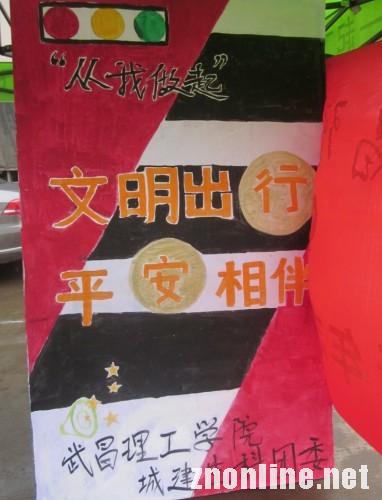 “从我做起”
文明出行
平安相伴
武昌理工学院
城建
团委
znonline.net